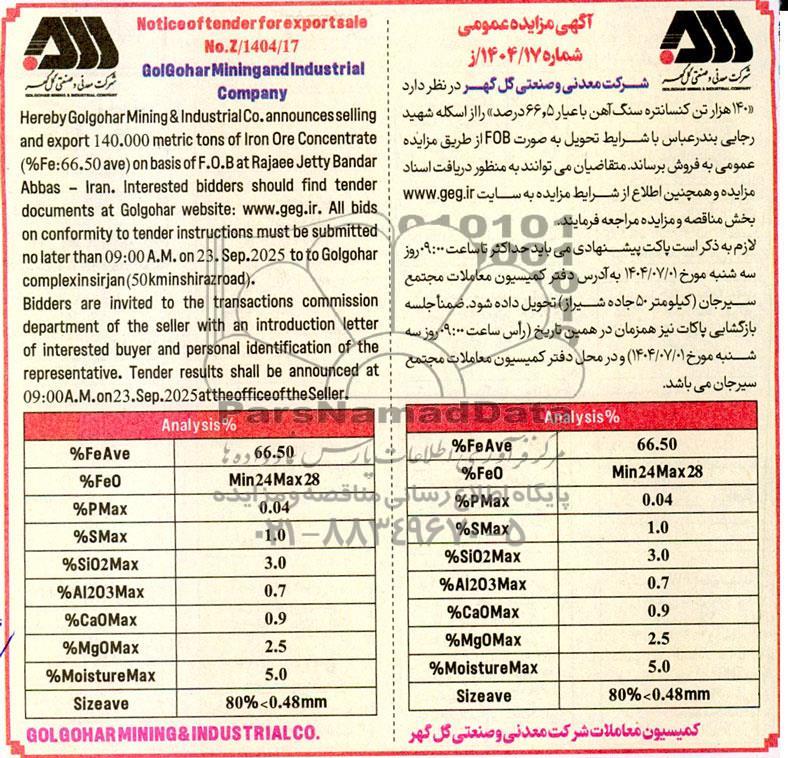 Notice of tender for export sale
No.Z/1404/17
GolGohar Mining and Industrial
Company
شرکت معدنی و صنعتی گل گهر
GOLGOHAR MINING & INDUSTRIAL COMPANY
Hereby Golgohar Mining & Industrial Co. announces selling
and export 140.000 metric tons of Iron Ore Concentrate
(%Fe:66.50 ave) on basis of F.O.B at Rajaee Jetty Bandar
Abbas – Iran. Interested bidders should find tender
documents at Golgohar website: www.geg.ir. All bids
on conformity to tender instructions must be submitted
no later than 09:00 A.M. on 23. Sep.2025 to to Golgohar
complex in sirjan (50km in shiraz road).
Bidders are invited to the transactions commission
department of the seller with an introduction letter
of interested buyer and personal identification of the
representative. Tender results shall be announced at
09:00 A.M. on 23.Sep.2025 at the office of the Seller.
Analysis%
%FeAve 66.50
%FeO Min24Max28
%PMax 0.04
%SMax 1.0
%SiO2Max 3.0
%Al2O3Max 0.7
%CaOMax 0.9
%MgOMax 2.5
%MoistureMax 5.0
Sizeave 80%<0.48mm
GOLGOHAR MINING & INDUSTRIAL CO.
آگهی مزایده عمومی
شماره ۱۴۰۴/۱۷/ز
شرکت معدنی و صنعتی گل گهر
GOLGOHAR MINING & INDUSTRIAL COMPANY
شرکت معدنی و صنعتی گل گهر در نظر دارد
«۱۴۰ هزار تن کنسانتره سنگ آهن با عیار ۶۶٫۵ درصد» را از اسکله شهید
رجایی بندرعباس با شرایط تحویل به صورت FOB از طریق مزایده
عمومی به فروش برساند. متقاضیان می توانند به منظور دریافت اسناد
مزایده و همچنین اطلاع از شرایط مزایده به سایت www.geg.ir
بخش مناقصه و مزایده مراجعه فرمایند.
لازم به ذکر است پاکت پیشنهادی می باید حداکثر تا ساعت ۰۹:۰۰ روز
سه شنبه مورخ ۱۴۰۴/۰۷/۰۱ به آدرس دفتر کمیسیون معاملات مجتمع
سیرجان (کیلومتر ۵۰ جاده شیراز) تحویل داده شود. ضمناً جلسه
بازگشایی پاکات نیز همزمان در همین تاریخ (رأس ساعت ۰۹:۰۰ روز سه
شنبه مورخ ۱۴۰۴/۰۷/۰۱) و در محل دفتر کمیسیون معاملات مجتمع
سیرجان می باشد.
Analysis%
%FeAve 66.50
%FeO Min24Max28
%PMax 0.04
%SMax 1.0
%SiO2Max 3.0
%Al2O3Max 0.7
%CaOMax 0.9
%MgOMax 2.5
%MoistureMax 5.0
Sizeave 80%<0.48mm
کمیسیون معاملات شرکت معدنی و صنعتی گل گهر
ParsNamadData
مرکز فرآوری اطلاعات پارس نماد داده ها
پایگاه اطلاع رسانی مناقصه و مزایده
۰۲۱-۸۸۳۴۹۶۷۰-۵